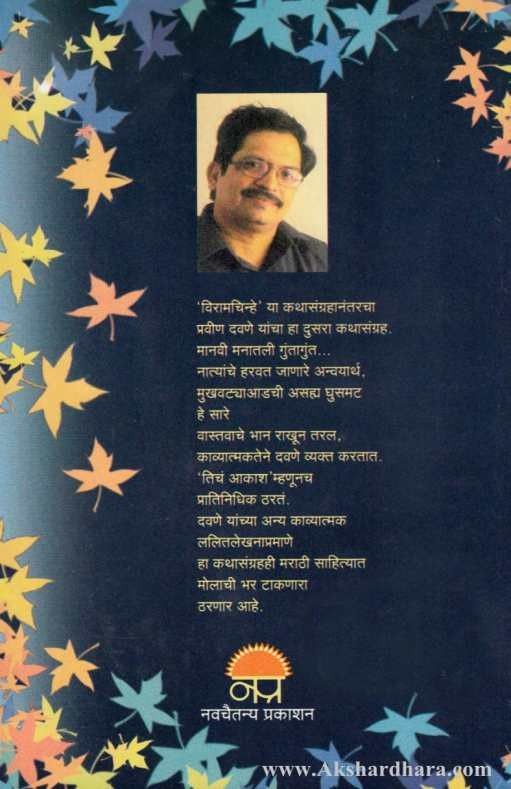 'विरामचिन्हे' या कथासंग्रहानंतरचा
प्रवीण दवणे यांचा हा दुसरा कथासंग्रह.
मानवी मनातली गुंतागुंत...
नात्यांचे हरवत जाणारे अन्वयार्थ,
मुखवट्याआडची असह्य घुसमट
हे सारे
वास्तवाचे भान राखून तरल,
काव्यात्मकतेने दवणे व्यक्त करतात.
'तिचं आकाश'म्हणूनच
प्रातिनिधिक ठरतं.
दवणे यांच्या अन्य काव्यात्मक
ललितलेखनाप्रमाणे
हा कथासंग्रहही मराठी साहित्यात
मोलाची भर टाकणारा
ठरणार आहे.
नप्र
नवचैतन्य प्रकाशन
www.Akshardhara.com